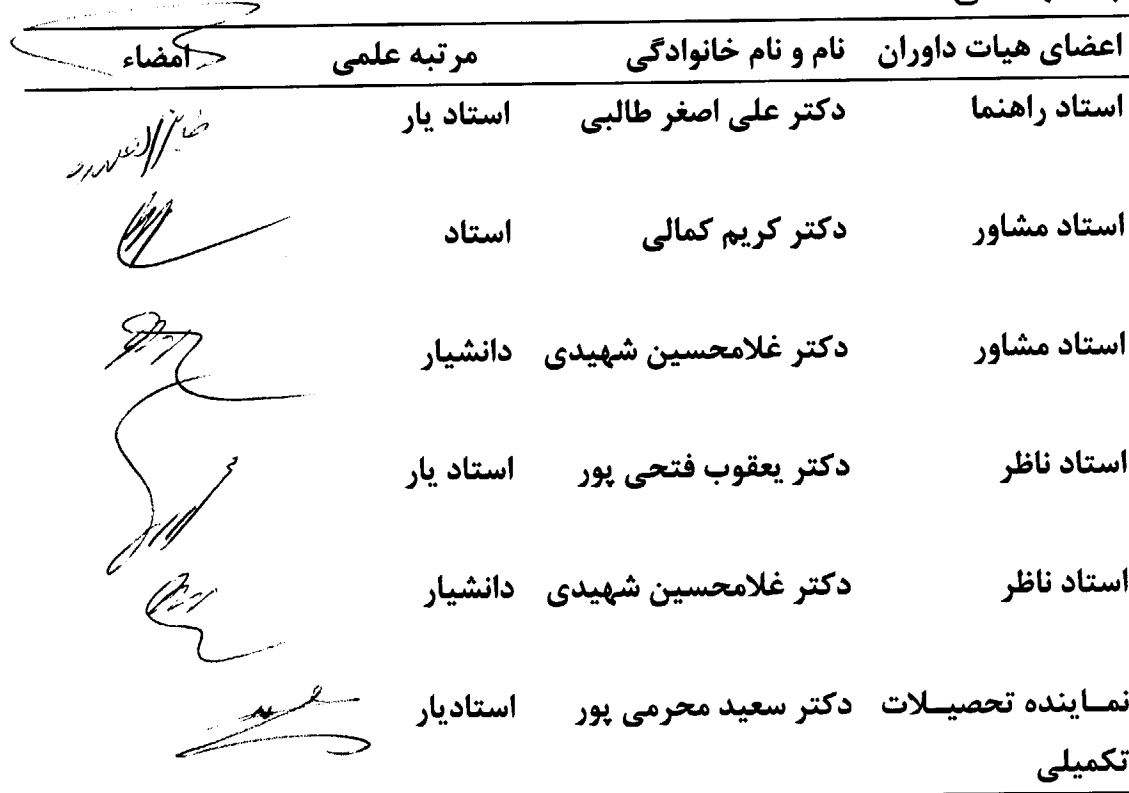 اعضای هیات داوران نام و نام خانوادگی مرتبه علمی امضاء
استاد راهنما دکتر علی اصغر طالبی استاد یار
استاد مشاور دکتر کریم کمالی استاد
استاد مشاور دکتر غلامحسین شهیدی دانشیار
استاد ناظر دکتر یعقوب فتحی پور استاد یار
استاد ناظر دکتر غلامحسین شهیدی دانشیار
نمــاینده تحصیــلات دکتر سعید محرمی پور استادیار
تکمیلی